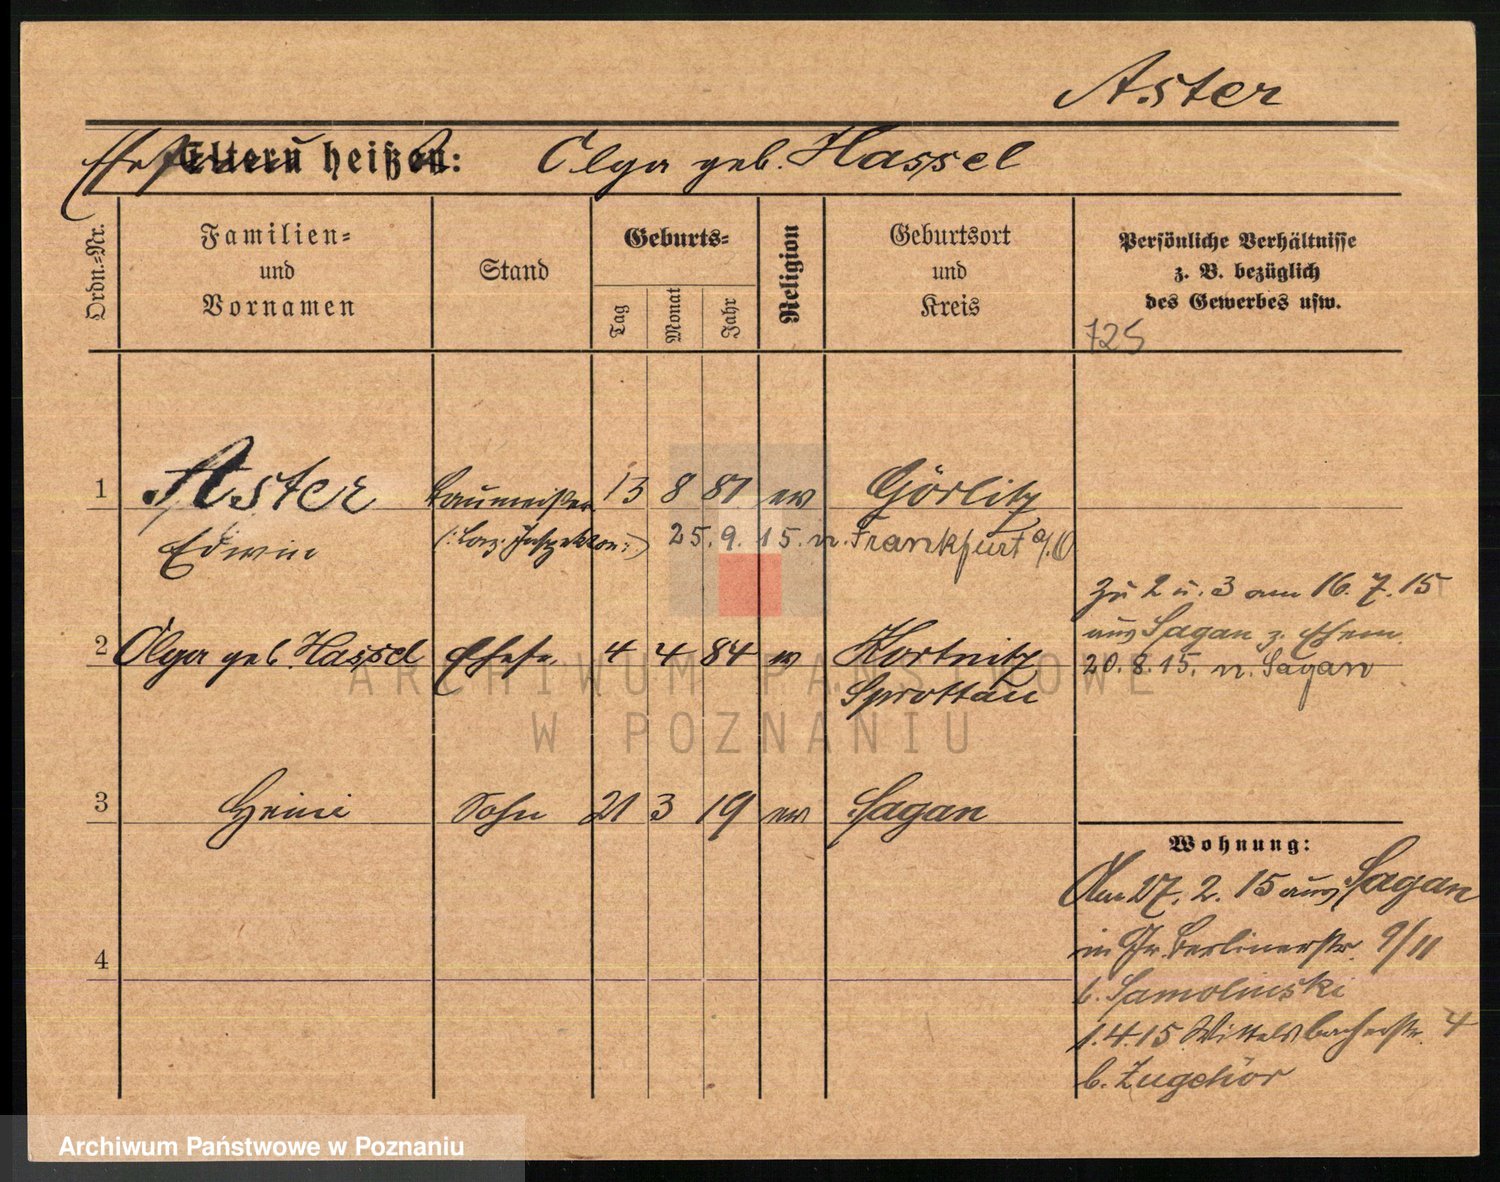 Aster
Ehefrau Eltern heißen: Olga geb. Hassel
Ordn.=Nr.
Familien=
und
Vornamen
Stand
Geburts=
Tag
Monat
Jahr
Religion
Geburtsort
und
Kreis
Persönliche Verhältnisse
z. B. bezüglich
des Gewerbes usw.
725
1 Aster Baumeister 13 8 81 ev Görlitz
Edwin Inspektor 25. 9. 15. n. Frankfurt a/O
zu 2 u. 3 am 16. 7. 15
aus Sagan z. Ehem
2 Olga geb. Hassel Ehefr. 4 4 84 ev Hartnitz
20. 8. 15. n. Sagan
Sprottau
3 Heini Sohn 21 3 19 ev Sagan
Wohnung:
Am 27. 2. 15 aus Sagan
in Gr. Berlinerstr. 9/11
b. Samolinski
4
1.4.15 Wittelsbacherstr. 4
b. Zugehör
ARCHIWUM PAŃSTWOWE
W POZNANIU
Archiwum Państwowe w Poznaniu